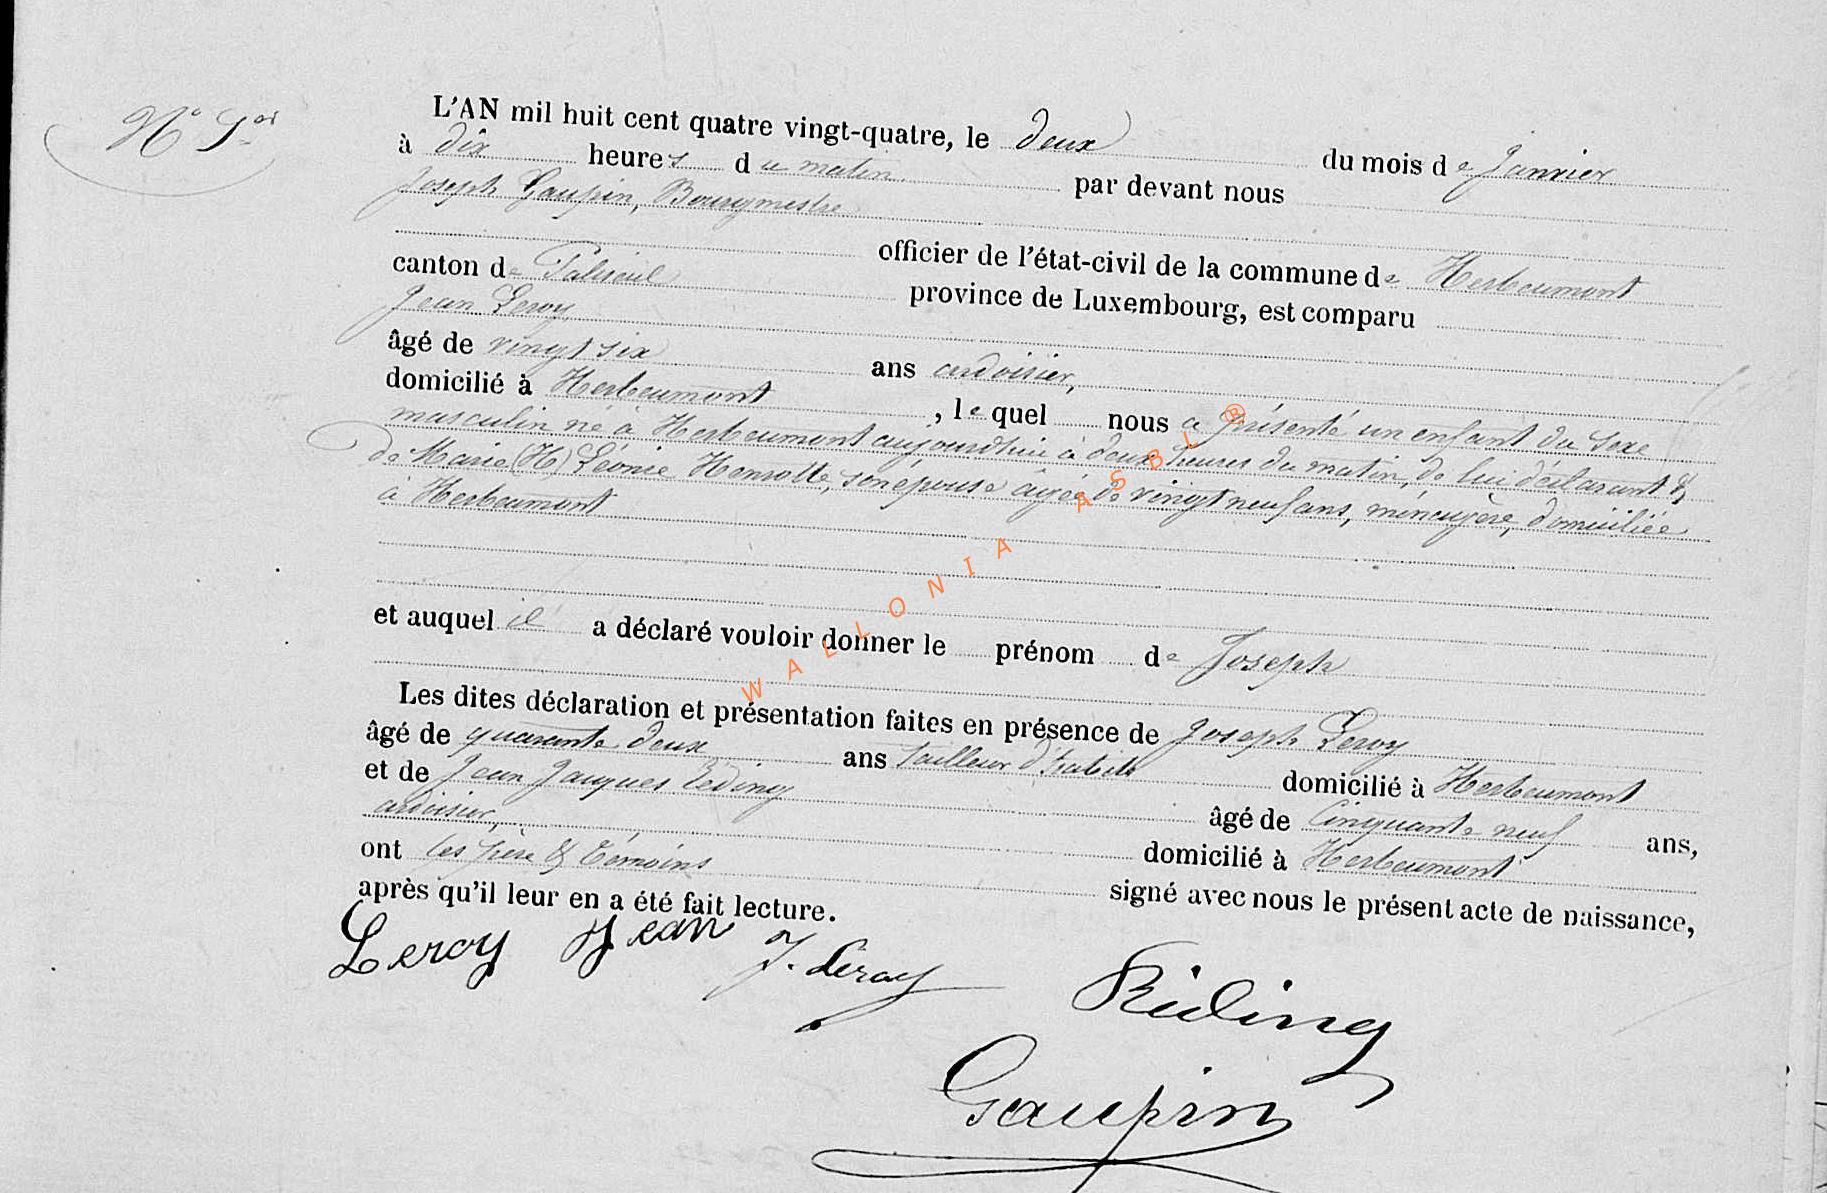 N° 1er
L'AN mil huit cent quatre vingt-quatre, le deux du mois de Janvier
à dix heures du matin par devant nous
Joseph Gaupin, Bourgmestre
officier de l'état-civil de la commune de Herbeumont
canton de Paliseul province de Luxembourg, est comparu
Jean Leroy
âgé de vingt six ans ardoisier,
domicilié à Herbeumont, lequel nous a présenté un enfant du sexe
masculin né à Herbeumont aujourdhui à deux heures du matin, de lui déclarant &
de Marie (H) Léonie Henrotte, son épouse âgée de vingt neuf ans, ménagère, domiciliée
à Herbeumont
et auquel il a déclaré vouloir donner le prénom de Joseph
Les dites déclaration et présentation faites en présence de Joseph Leroy
âgé de quarante deux ans tailleur d'habits domicilié à Herbeumont
et de Jean Jacques Réding âgé de Cinquante neuf ans,
ardoisier, domicilié à Herbeumont
ont les père & témoins signé avec nous le présent acte de naissance,
après qu'il leur en a été fait lecture.
Leroy Jean J. Leroy Réding
Gaupin
WALLONIA ASBL ®